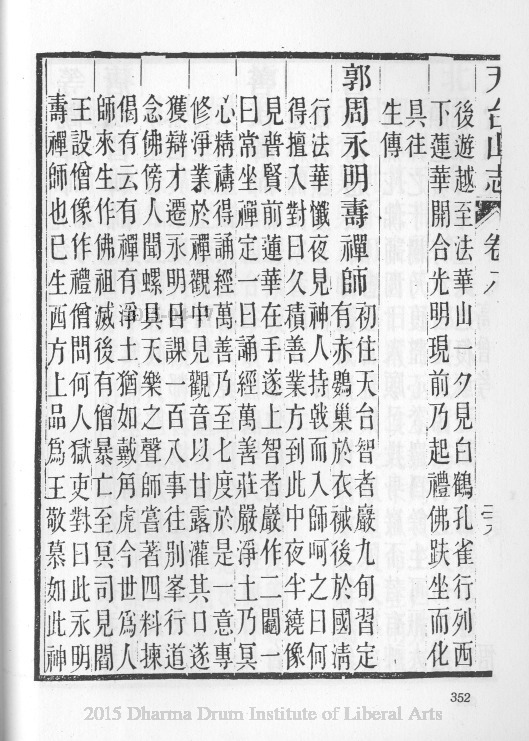 天台山志 卷八 二八
後遊越至法華山一夕見白鶴孔雀行列西
下蓮華開合光明現前乃起禮佛趺坐而化
具往
生傳
郭周永明壽禪師初住天台智者巖九旬習定
有赤鸚巢於衣祴後於國清
行法華懺夜見神人持戟而入師呵之曰何
得擅入對曰久積善業方到此中夜半繞像
見普賢前蓮華在手遂上智者巖作二鬮一
曰常坐禪定一曰誦經萬善莊嚴淨土乃冥
心精禱得誦經萬善乃至七度於是一意專
修淨業於禪觀中見觀音以甘露灌其口遂
獲辯才遷永明日課一百八事往別峯行道
念佛傍人聞螺具天樂之聲師嘗著四料揀
偈有云有禪有淨土猶如戴角虎今世爲人
師來生作佛祖滅後有僧暴亡至冥司見閻
王設僧像作禮僧問何人獄吏對曰此永明
壽禪師也已生西方上品爲王敬慕如此神
352
2015 Dharma Drum Institute of Liberal Arts